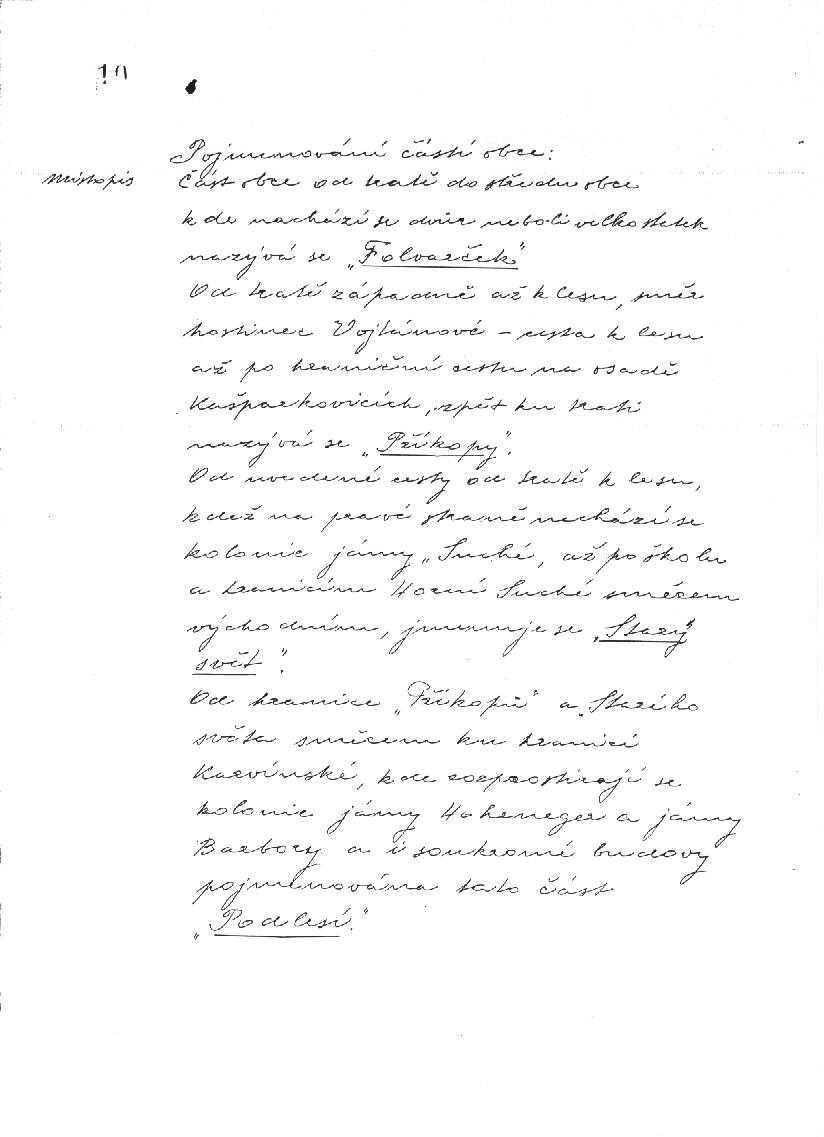 10
Pojmenování částí obce:
Místopis
Část obce od tratě do středu obce
kde nachází se dvůr neboli velkostatek
nazývá se „Folvarček"
Od tratě západně až k lesu, směr
hostinec Vojtánové – cesta k lesu
až po hraniční cestu na osadě
Kašparkovicích, zpět ku trati
nazývá se „Příkopy".
Od uvedené cesty od tratě k lesu,
kdež na pravé straně nachází se
kolonie jámy „Suché, až po školu
a hranicím Horní Suché směrem
východním, jmenuje se „Starý
svět".
Od hranice „Příkopů" a „Starého
světa směrem ku hranici
Karvínské, kde rozprostírají se
kolonie jámy Hoheneger a jámy
Barbory a i soukromé budovy
pojmenována tato část
„Podlesí."